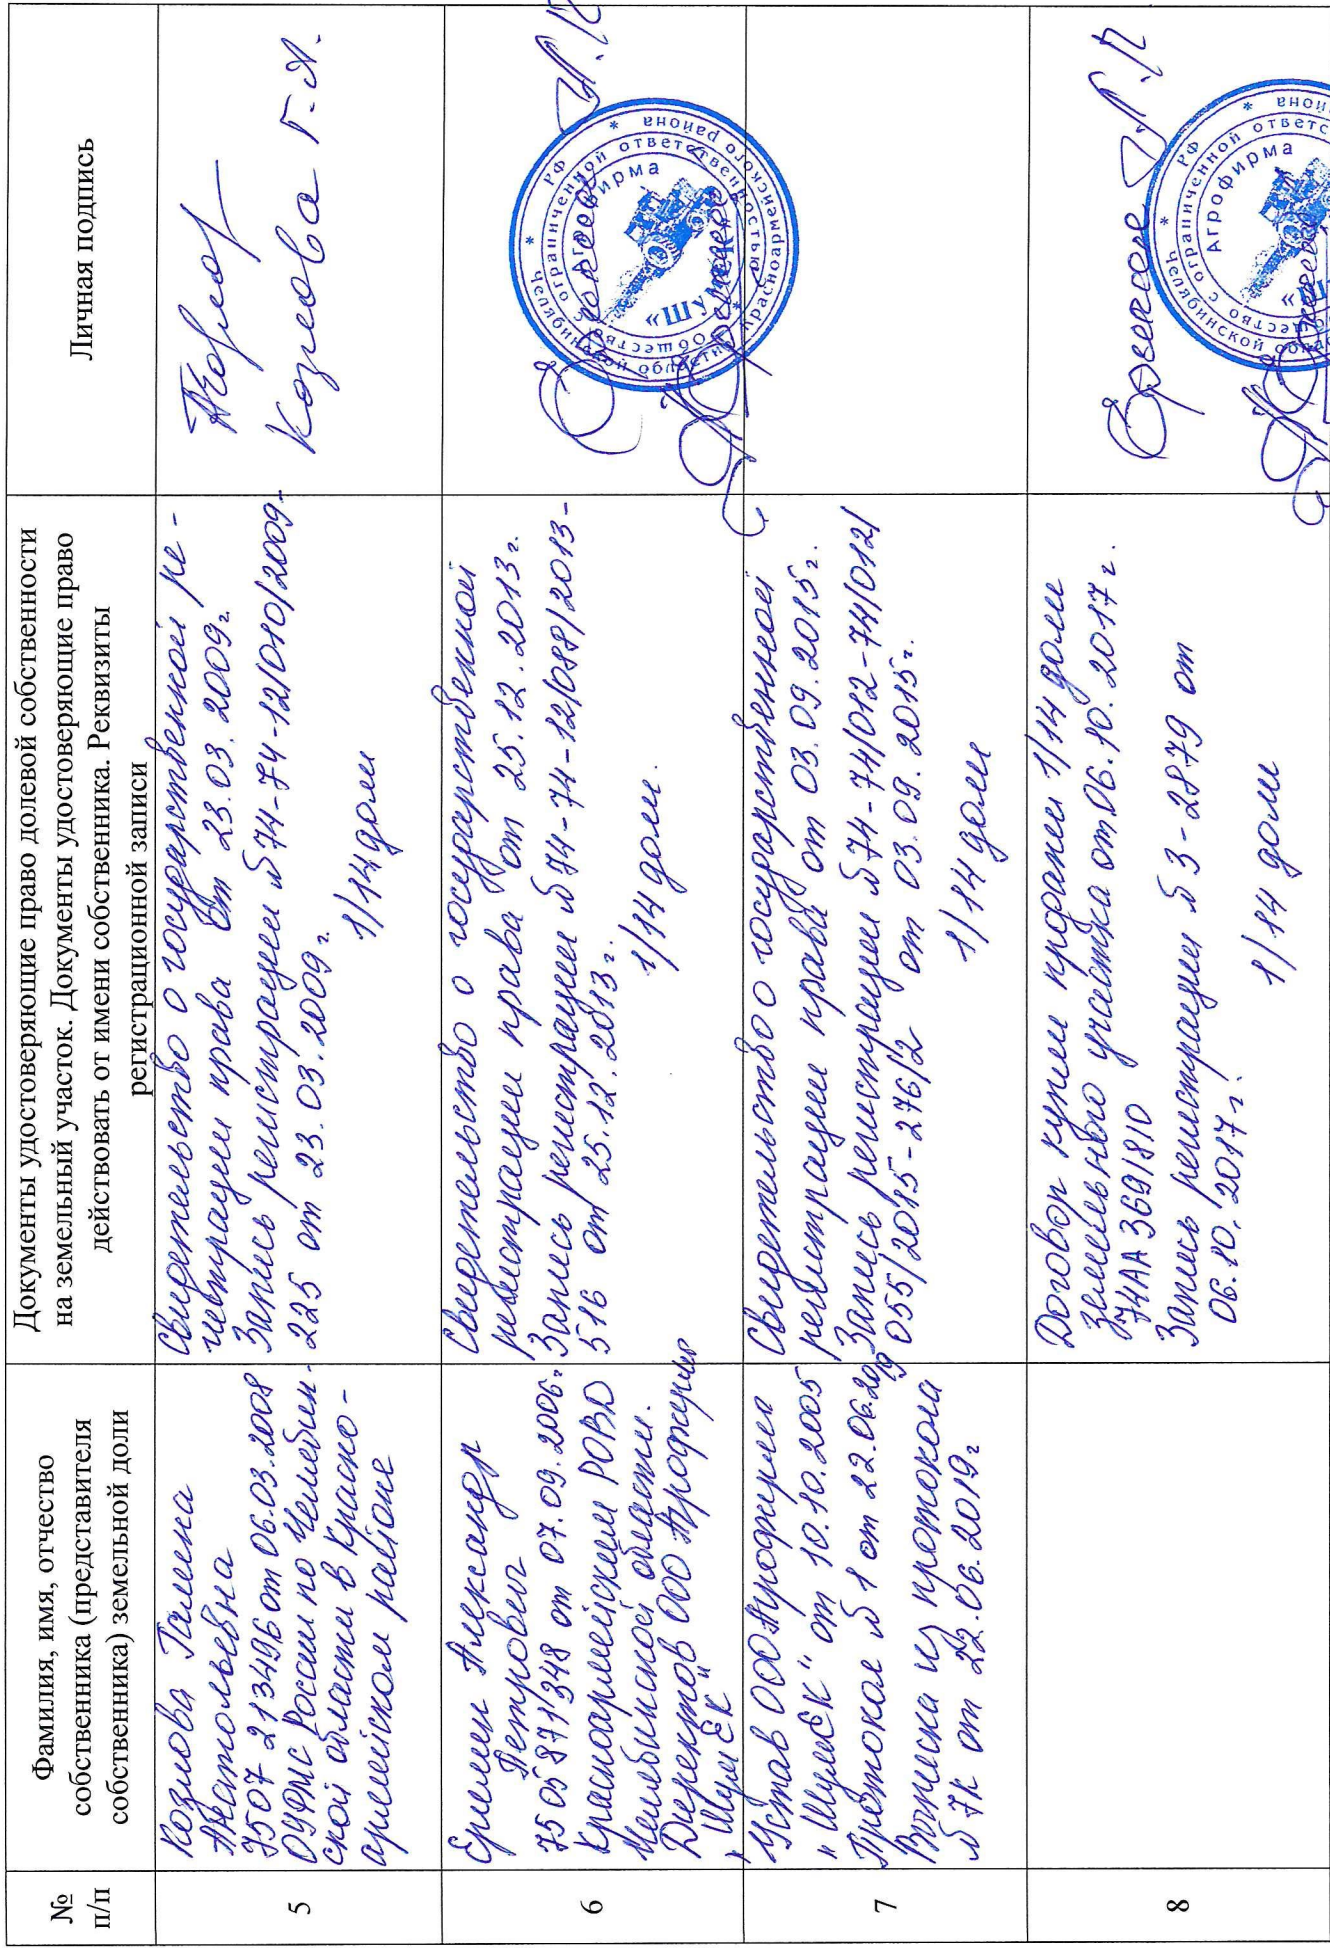 №
п/п
Фамилия, имя, отчество
собственника (представителя
собственника) земельной доли
Документы удостоверяющие право долевой собственности
на земельный участок. Документы удостоверяющие право
действовать от имени собственника. Реквизиты
регистрационной записи
Личная подпись
5
Козлова Галина
Анатольевна
7507 213496 от 06.03.2008
ОУФМС России по Челябин-
ской области в Красно-
армейском районе
Свидетельство о государственной ре-
гистрации права от 23.03.2009г.
Запись регистрации №74-74-12/010/2009-
225 от 23.03.2009г.
1/14 доли
Козлова Г.А.
6
Еремин Александр
Петрович
7505 871348 от 07.09.2006г.
Красноармейским РОВД
Челябинской области.
Директор ООО Агрофирма
"Шумек"
Свидетельство о государственной
регистрации права от 25.12.2013г.
Запись регистрации №74-74-12/088/2013-
516 от 25.12.2013г.
1/14 доли.
А.П
* РФ * Челябинской области Красноармейского района
Общество с ограниченной ответственностью
Агрофирма
«ШУМЕК»
7
Устав ООО Агрофирма
"Шумек" от 10.10.2005
Протокол №1 от 22.06.2019
Выписка из протокола
№7к от 22.06.2019г
Свидетельство о государственной
регистрации права от 03.09.2015г.
Запись регистрации №74-74/012-74/012/
055/2015-276/2 от 03.09.2015г.
1/14 доли
8
Договор купли продажи 1/14 доли
земельного участка от 06.10.2017г.
74АА 3691810
Запись регистрации №3-2879 от
06.10.2017г.
1/14 доли
А.П
* РФ * Челябинской
Общество с ограниченной
Агрофирма